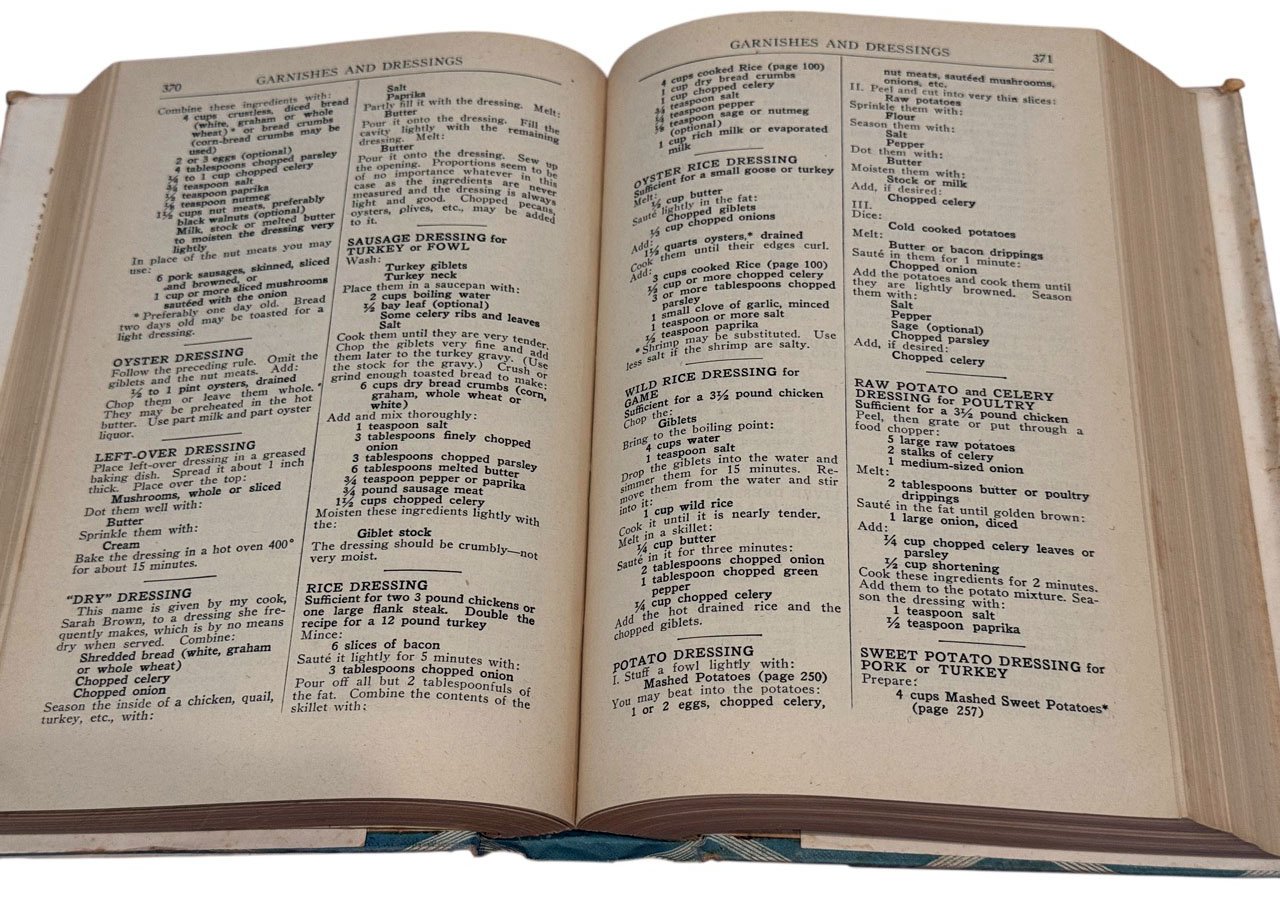 370
GARNISHES AND DRESSINGS
Combine these ingredients with:
4 cups crustless, diced bread
(white, graham or whole
wheat)* or bread crumbs
(corn-bread crumbs may be
used)
2 or 3 eggs (optional)
4 tablespoons chopped parsley
to 1 cup chopped celery
teaspoon salt
teaspoon paprika
teaspoon nutmeg
1½ cups nut meats, preferably
black walnuts (optional)
Milk, stock or melted butter
to moisten the dressing very
lightly
In place of the nut meats you may
use:
6 pork sausages, skinned, sliced
and browned, or
1 cup or more sliced mushrooms
sautéed with the onion
*Preferably one day old. Bread
two days old may be toasted for a
light dressing.
OYSTER DRESSING
Follow the preceding rule. Omit the
giblets and the nut meats. Add:
½ to 1 pint oysters, drained
Chop them or leave them whole.
They may be preheated in the hot
butter. Use part milk and part oyster
liquor.
LEFT-OVER DRESSING
Place left-over dressing in a greased
baking dish. Spread it about 1 inch
thick. Place over the top:
Mushrooms, whole or sliced
Dot them well with:
Butter
Sprinkle them with:
Cream
Bake the dressing in a hot oven 400°
for about 15 minutes.
"DRY" DRESSING
This name is given by my cook,
Sarah Brown, to a dressing she fre-
quently makes, which is by no means
dry when served. Combine:
Shredded bread (white, graham
or whole wheat)
Chopped celery
Chopped onion
Season the inside of a chicken, quail,
turkey, etc., with:
Salt
Paprika
Partly fill it with the dressing. Melt:
Butter
Pour it onto the dressing. Fill the
cavity lightly with the remaining
dressing. Melt:
Butter
Pour it onto the dressing. Sew up
the opening. Proportions seem to be
of no importance whatever in this
case as the ingredients are never
measured and the dressing is always
light and good. Chopped pecans,
oysters, plives, etc., may be added
to it.
SAUSAGE DRESSING for
TURKEY or FOWL
Wash:
Turkey giblets
Turkey neck
Place them in a saucepan with:
2 cups boiling water
½ bay leaf (optional)
Some celery ribs and leaves
Salt
Cook them until they are very tender.
Chop the giblets very fine and add
them later to the turkey gravy. (Use
the stock for the gravy.) Crush or
grind enough toasted bread to make:
6 cups dry bread crumbs (corn,
graham, whole wheat or
white)
Add and mix thoroughly:
1 teaspoon salt
3 tablespoons finely chopped
onion
3 tablespoons chopped parsley
6 tablespoons melted butter
¾ teaspoon pepper or paprika
¾ pound sausage meat
1½ cups chopped celery
Moisten these ingredients lightly with
the:
Giblet stock
The dressing should be crumbly—not
very moist.
RICE DRESSING
Sufficient for two 3 pound chickens or
one large flank steak. Double the
recipe for a 12 pound turkey
Mince:
6 slices of bacon
Sauté it lightly for 5 minutes with:
3 tablespoons chopped onion
Pour off all but 2 tablespoonfuls of
the fat. Combine the contents of the
skillet with:
GARNISHES AND DRESSINGS
371
4 cups cooked Rice (page 100)
1 cup dry bread crumbs
1 cup chopped celery
teaspoon salt
teaspoon pepper
teaspoon sage or nutmeg
(optional)
1 cup rich milk or evaporated
milk
OYSTER RICE DRESSING
Sufficient for a small goose or turkey
Melt:
½ cup butter
Sauté lightly in the fat:
Chopped giblets
cup chopped onions
Add:
1½ quarts oysters,* drained
Cook them until their edges curl.
Add:
3 cups cooked Rice (page 100)
½ cup or more chopped celery
3 or more tablespoons chopped
parsley
1 small clove of garlic, minced
1 teaspoon or more salt
½ teaspoon paprika
*Shrimp may be substituted. Use
less salt if the shrimp are salty.
WILD RICE DRESSING for
GAME
Sufficient for a 3½ pound chicken
Chop the:
Giblets
Bring to the boiling point:
4 cups water
1 teaspoon salt
Drop the giblets into the water and
simmer them for 15 minutes. Re-
move them from the water and stir
into it:
1 cup wild rice
Cook it until it is nearly tender.
Melt in a skillet:
¼ cup butter
Sauté in it for three minutes:
2 tablespoons chopped onion
1 tablespoon chopped green
pepper
¼ cup chopped celery
Add the hot drained rice and the
chopped giblets.
POTATO DRESSING
I. Stuff a fowl lightly with:
Mashed Potatoes (page 250)
You may beat into the potatoes:
1 or 2 eggs, chopped celery,
nut meats, sautéed mushrooms,
onions, etc.
II. Peel and cut into very thin slices:
Raw potatoes
Sprinkle them with:
Flour
Season them with:
Salt
Pepper
Dot them with:
Butter
Moisten them with:
Stock or milk
Add, if desired:
Chopped celery
III.
Dice:
Cold cooked potatoes
Melt:
Butter or bacon drippings
Sauté in them for 1 minute:
Chopped onion
Add the potatoes and cook them until
they are lightly browned. Season
them with:
Salt
Pepper
Sage (optional)
Chopped parsley
Add, if desired:
Chopped celery
RAW POTATO and CELERY
DRESSING for POULTRY
Sufficient for a 3½ pound chicken
Peel, then grate or put through a
food chopper:
5 large raw potatoes
2 stalks of celery
1 medium-sized onion
Melt:
2 tablespoons butter or poultry
drippings
Sauté in the fat until golden brown:
1 large onion, diced
Add:
¼ cup chopped celery leaves or
parsley
½ cup shortening
Cook these ingredients for 2 minutes.
Add them to the potato mixture. Sea-
son the dressing with:
1 teaspoon salt
½ teaspoon paprika
SWEET POTATO DRESSING for
PORK or TURKEY
Prepare:
4 cups Mashed Sweet Potatoes*
(page 257)